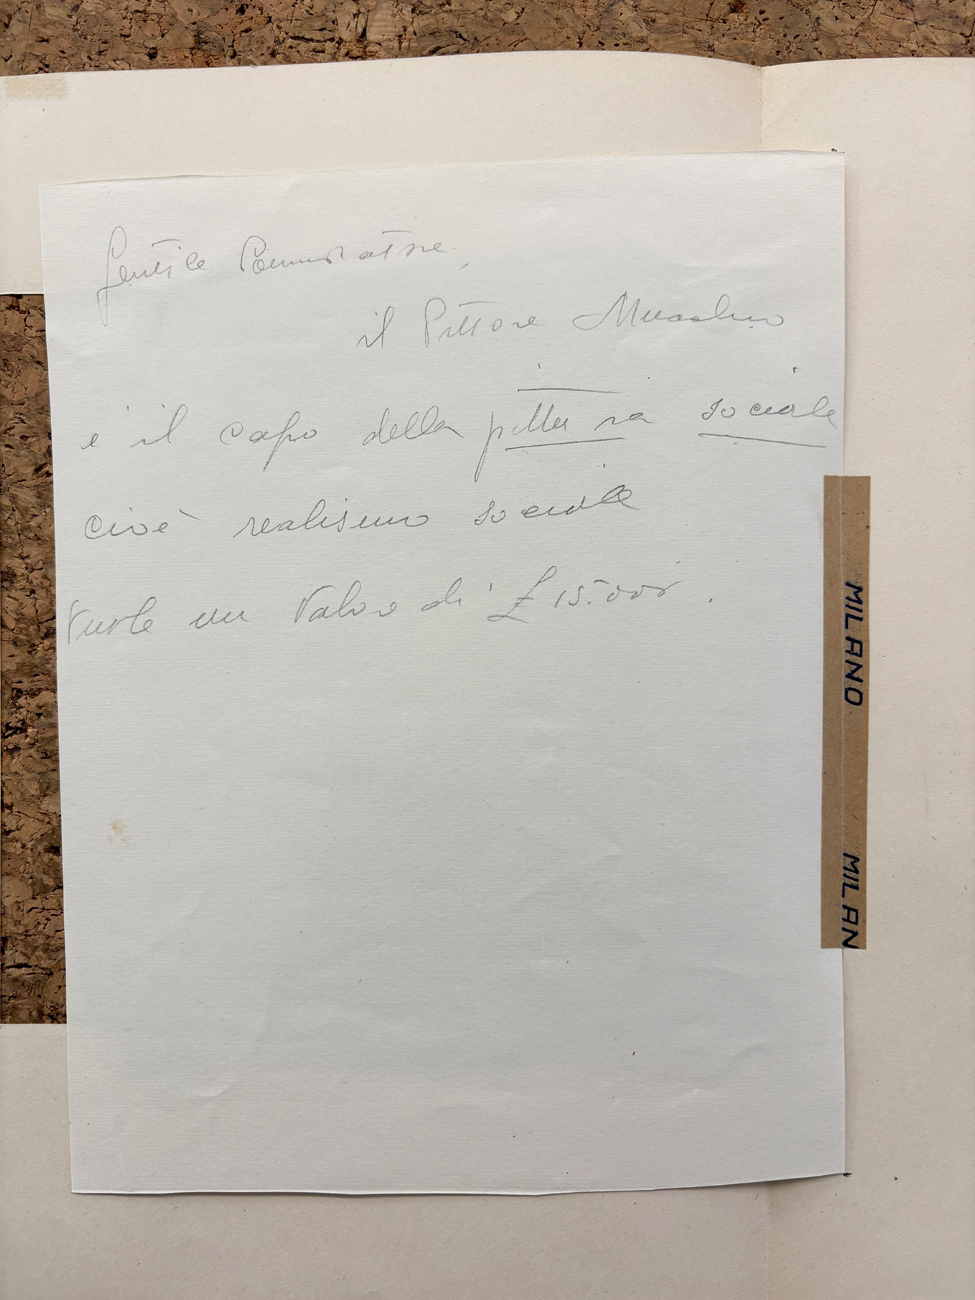 Gentile Commendatore,
il Pittore
è il capo della pittura sociale
cioè realismo sociale
Vuole un Valore di £ 15.000.
MILANO
MILAN